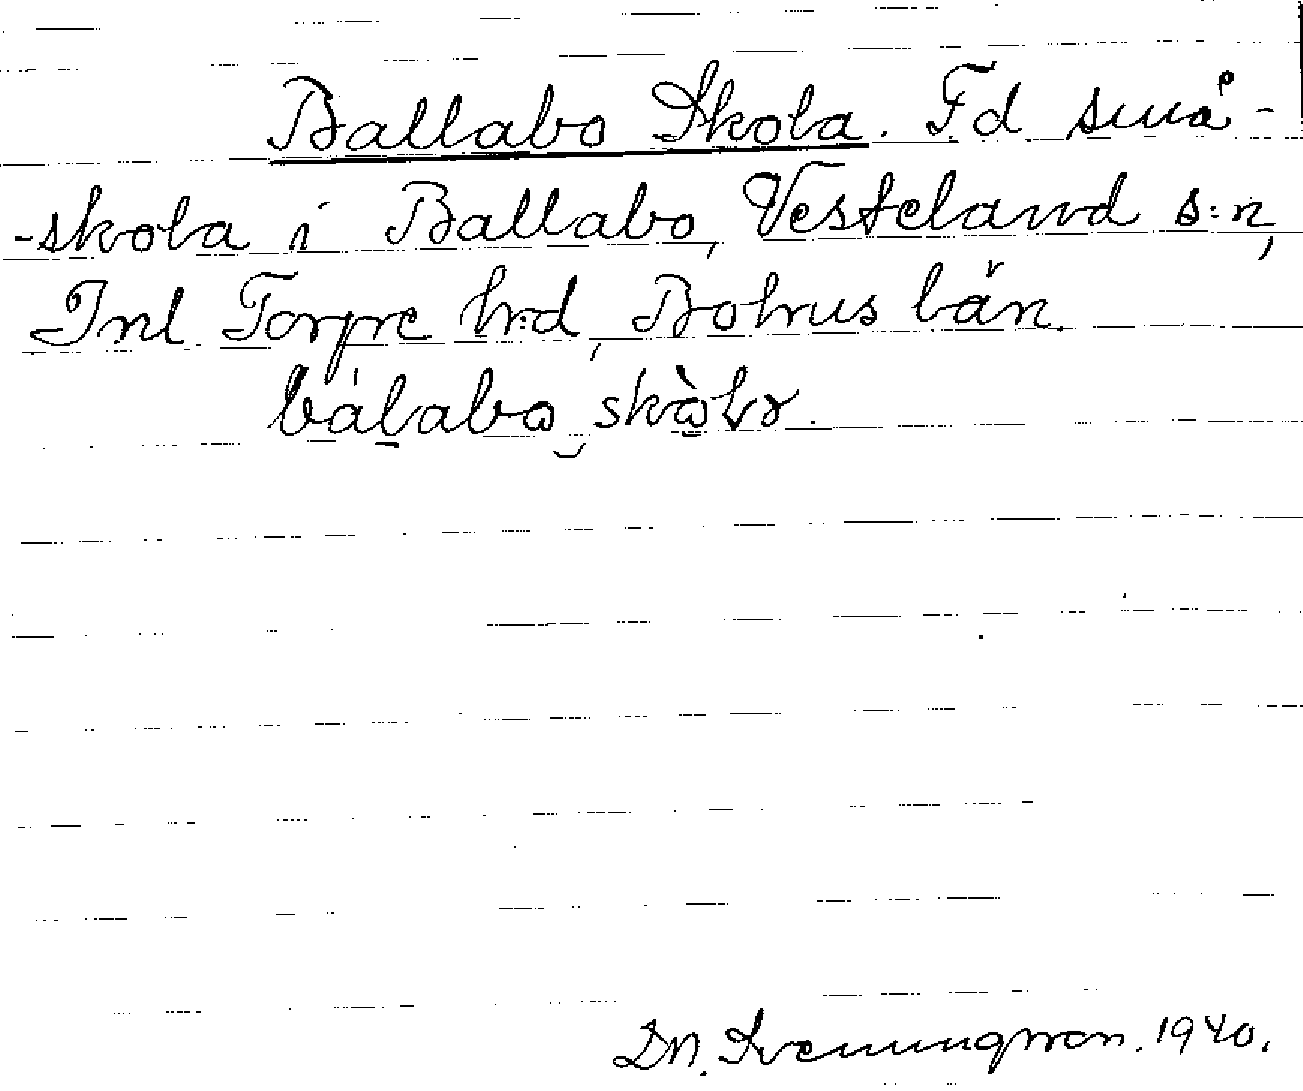 Ballabo Skola. F d små-
-skola i Ballabo, Vesteland s:n,
Inl Torpe h:d, Bohus län.
bálabo skòlɤ.
DN. Svenungsson. 1940.